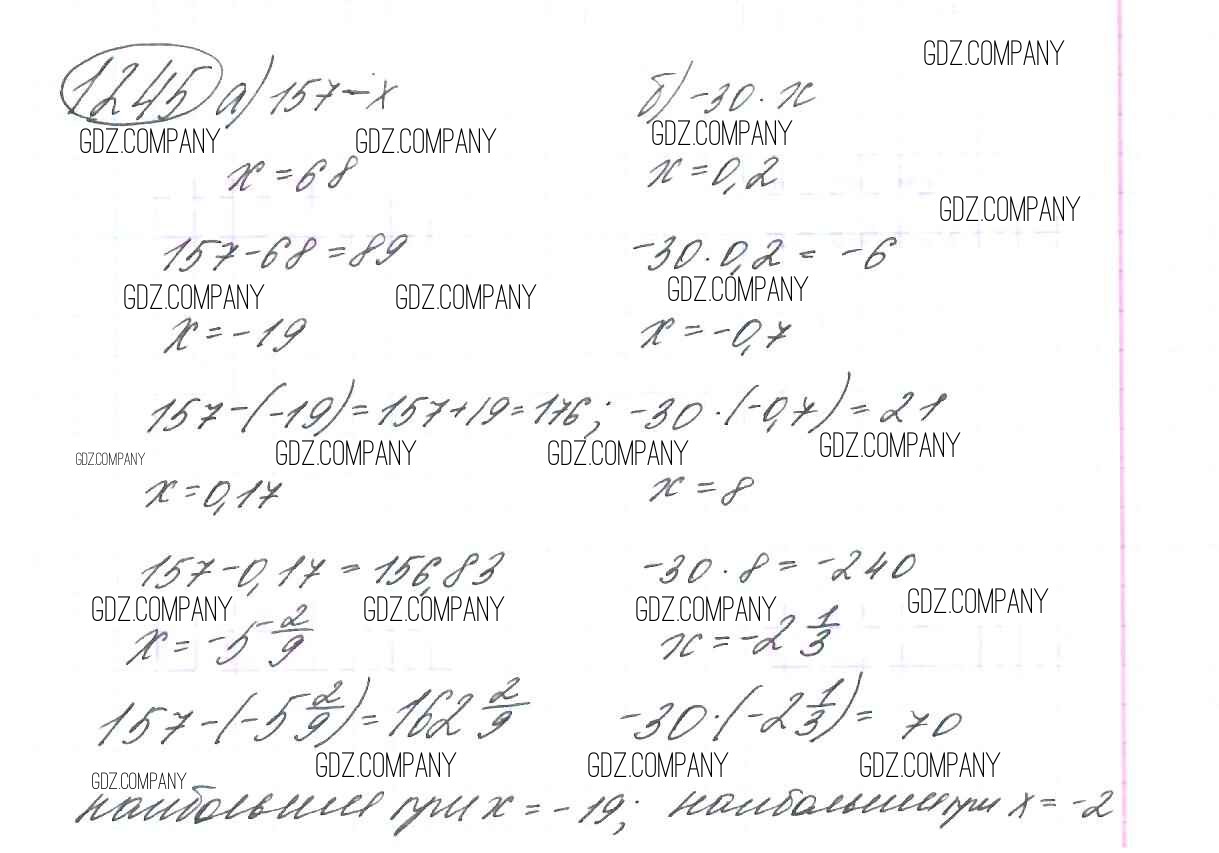 GDZ.COMPANY
1245 а) 157 - x б) -30 · x
GDZ.COMPANY GDZ.COMPANY GDZ.COMPANY
x = 68 x = 0,2
GDZ.COMPANY
157 - 68 = 89 -30 · 0,2 = -6
GDZ.COMPANY GDZ.COMPANY GDZ.COMPANY
x = -19 x = -0,7
157 - (-19) = 157 + 19 = 176; -30 · (-0,7) = 21
GDZ.COMPANY GDZ.COMPANY GDZ.COMPANY GDZ.COMPANY
x = 0,17 x = 8
157 - 0,17 = 156,83 -30 · 8 = -240
GDZ.COMPANY GDZ.COMPANY GDZ.COMPANY GDZ.COMPANY
x = -5 2/9 x = -2 1/3
157 - (-5 2/9) = 162 2/9 -30 · (-2 1/3) = 70
GDZ.COMPANY GDZ.COMPANY GDZ.COMPANY GDZ.COMPANY
наибольшии при x = -19; наибольшии при x = -2